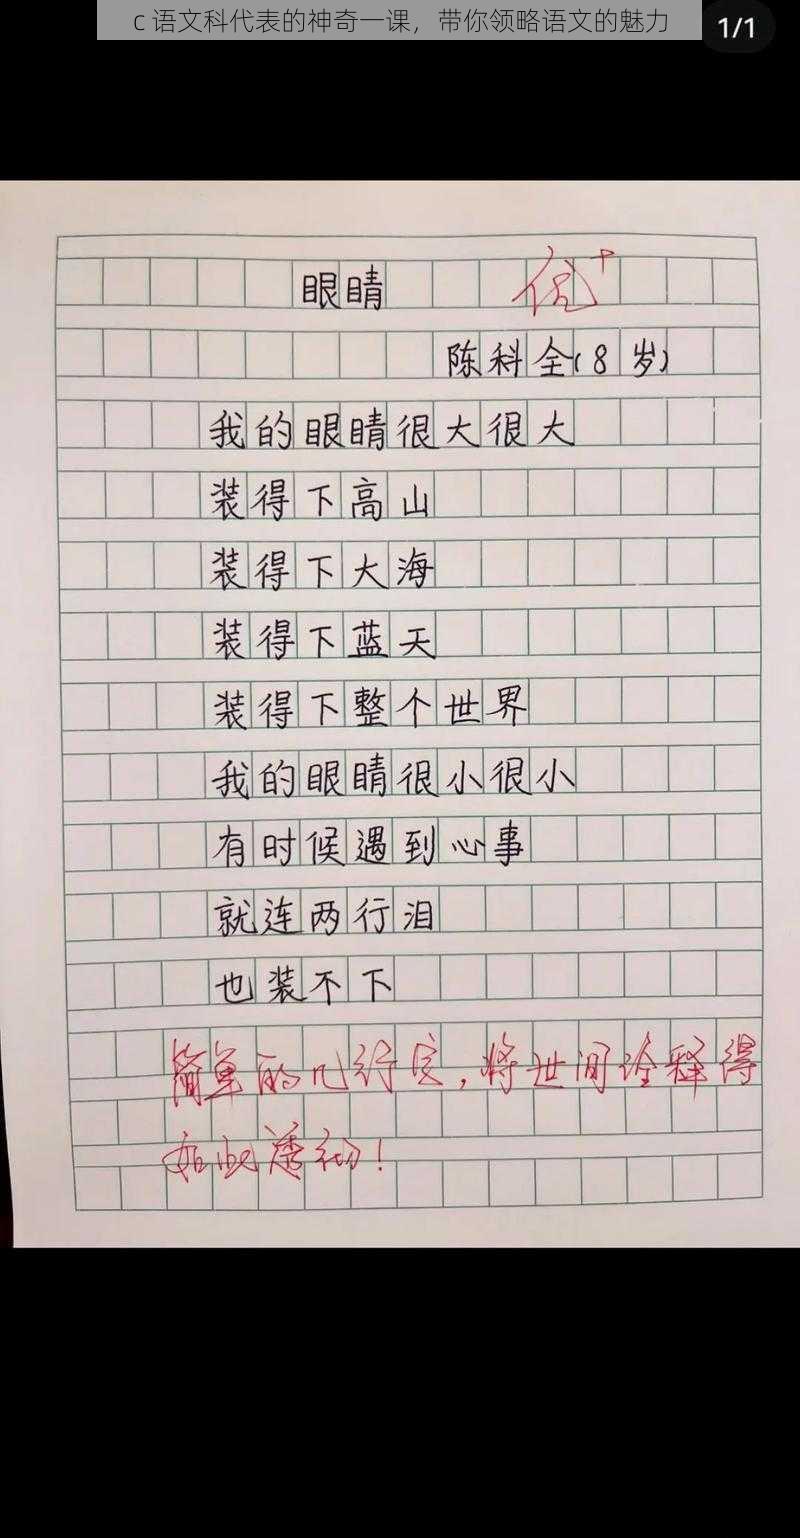 c 语文科代表的神奇一课，带你领略语文的魅力
1/1
眼睛
优+
陈科全(8岁)
我的眼睛很大很大
装得下高山
装得下大海
装得下蓝天
装得下整个世界
我的眼睛很小很小
有时候遇到心事
就连两行泪
也装不下
简单的几行字，将世间诠释得
如此透彻！